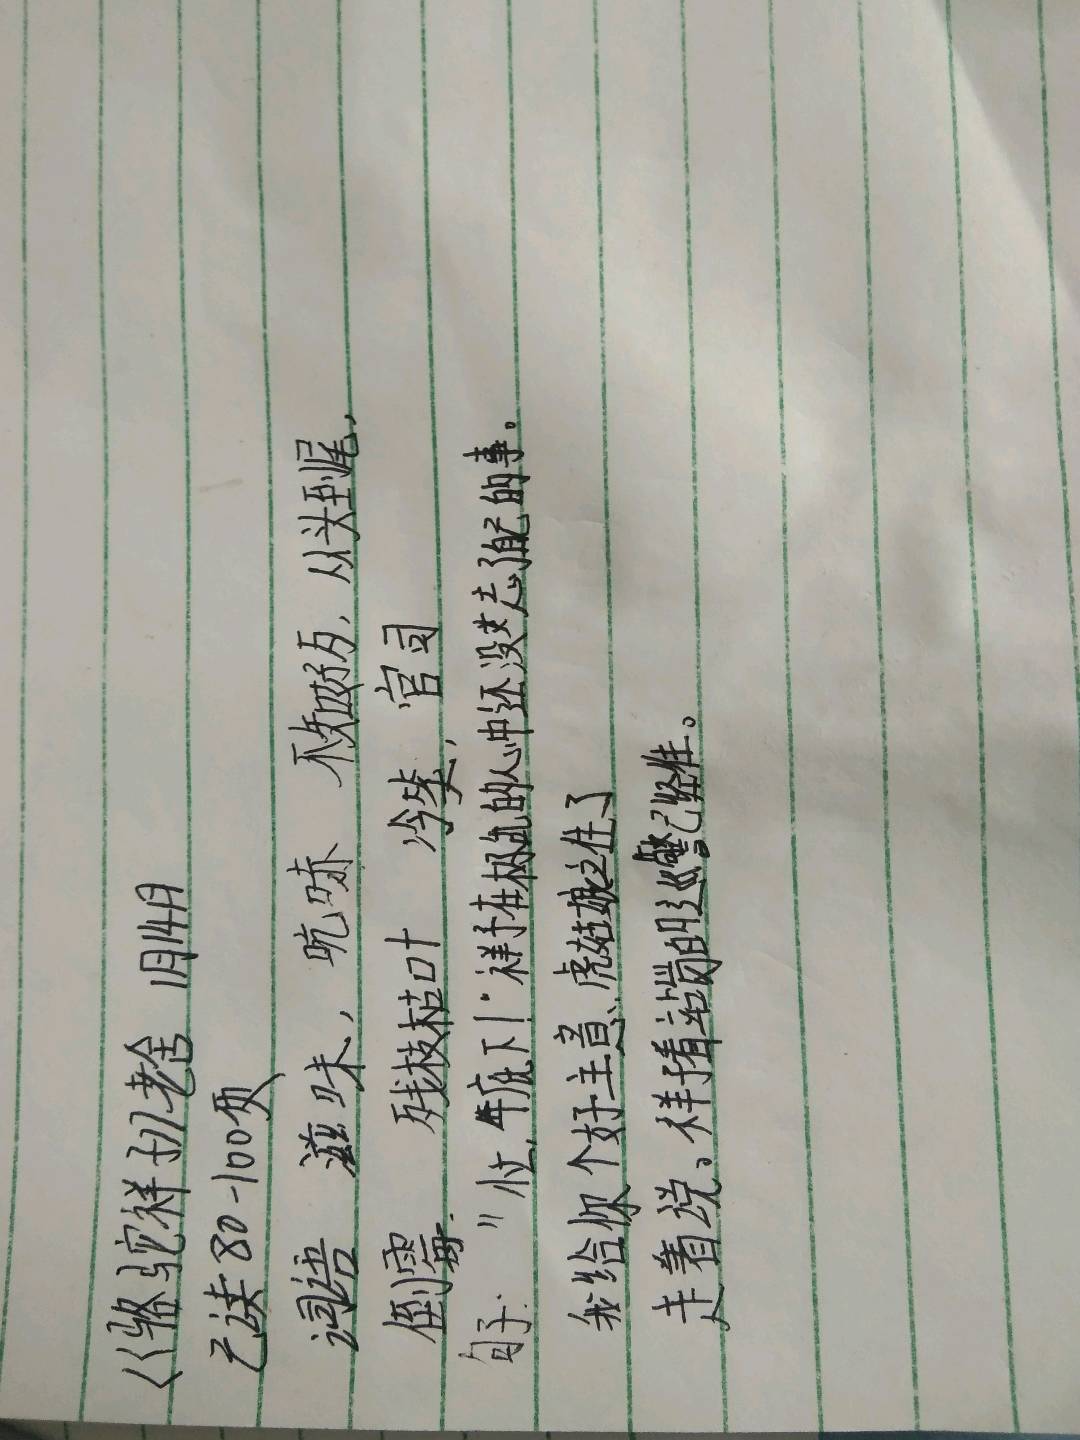 《骆驼祥子》老舍 1月14日
已读80-100页
词语 滋味, 吭哧 不知好歹, 从头到尾,
倒霉. 残枝枯叶 冷笑, 官司
句子: " 位,年底下!"祥子在极乱的心中还没忘了自己的事。
我给你个好主意、虎姑娘立住了
走着说。祥子看站岗的巡警已经往。